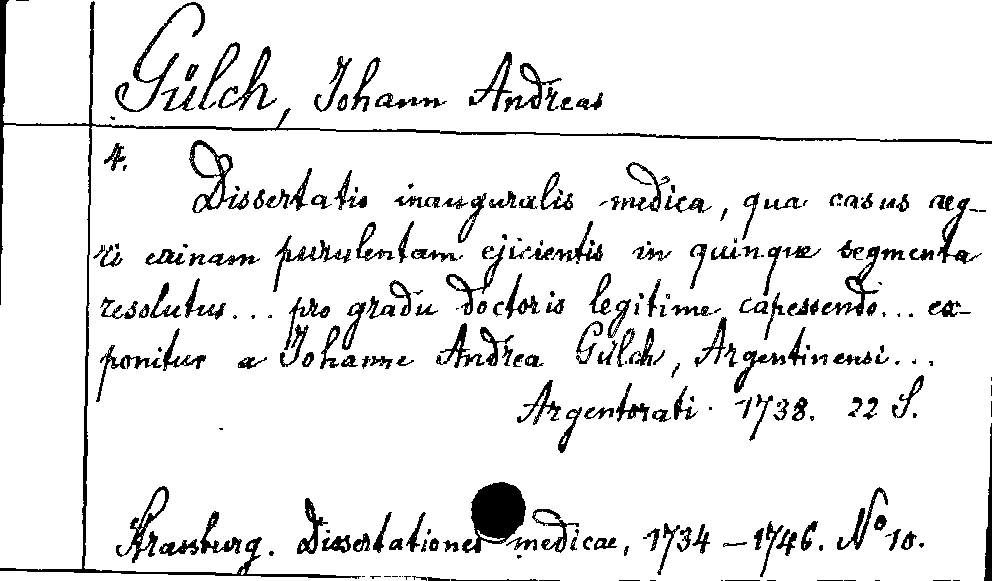 Gülch, Johann Andreas
4.
Dissertatio inauguralis medica, qua casus aeg-
ri urinam purulentam ejicientis in quinque segmenta
resolutus... pro gradu doctoris legitime capessendo... ex-
ponitur a Johanne Andrea Gülch, Argentinensi...
Argentorati. 1738. 22 S.
Strassburg. Dissertationes medicae, 1734-1746. No 10.